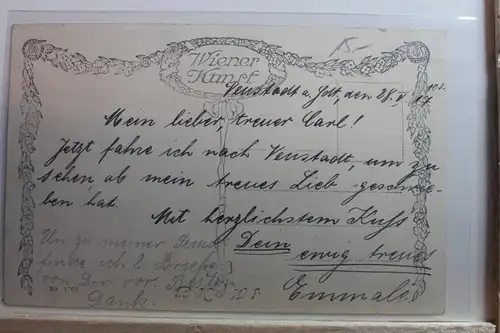 15.-
Wiener
Kunst
Neustadt a. d., den 28. V. 17
Mein lieber, treuer Carl!
Jetzt fahre ich nach Neustadt, um zu
sehen, ob mein treues Lieb geschrie-
ben hat.
Mit herzlichstem Kuss
Dein
ewig treues
Emmale!
Un zu meiner
finde ich 2 Briefe
von Dir vor.
Dank.